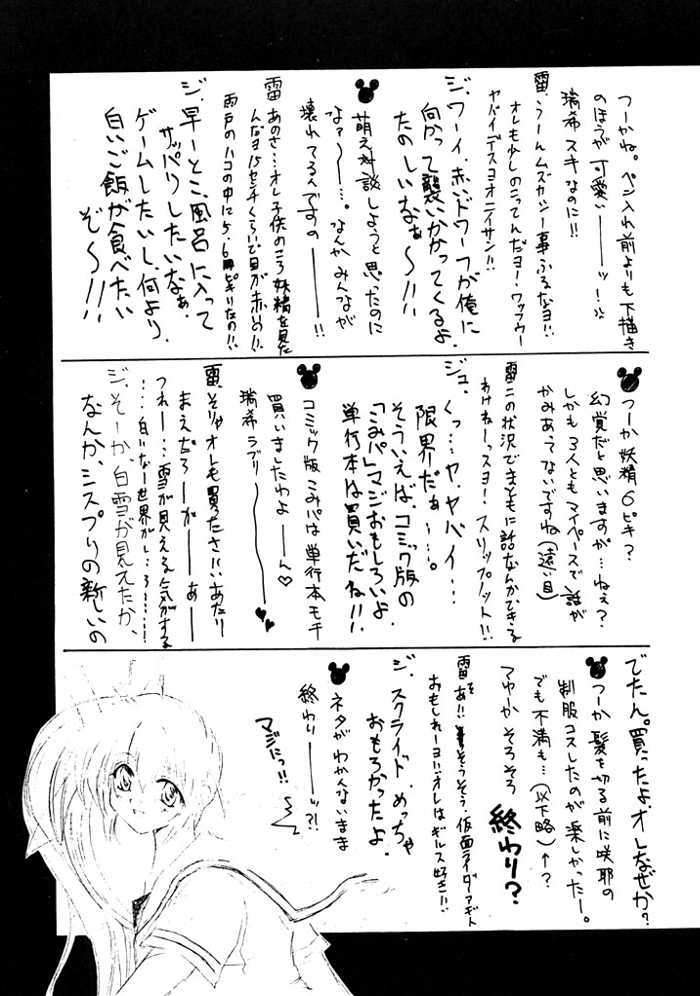 つーかね。ペン入れ前よりも下描き
のほうが可愛いーーーッ!
瑞希スキなのに!!
雷.うーんムズカシー事ふるなヨ!!
オレも少しのこってんだヨー!ワップウー
ヤバイデスヨオニイサン!!
ジ.ワーイ.赤いドワーフが俺に
向かって襲いかかってくるよ.
たのしいなぁ〜!!
萌え対談しようと思ったのに
なァ〜ー…。なんかみんなが
壊れてるんですのーーー!!
雷 あのさ…オレ子供のころ妖精を見た
んだヨ15センチくらいで目が赤い!!
雨戸のハコの中に5.6ピキいたの!!
ジ.早ーとこ.風呂に入って
サッパリしたいなぁ.
ゲームしたいし.何より.
白いご飯が食べたい
ぞ〜!!
つーか妖精6ピキ?
幻覚だと思いますが…ねぇ?
しかも3人ともマイペースで話が
かみあってないですね(遠い目)
雷 この状況でまともに話なんかできる
わけねーっスよ!スリップノット!!
ジュ.
くっ…ヤ、ヤバイ…
限界だぁーー…。
そういえば、コミック版の
「こみパ」マジおもしろいよ.
単行本は買いだね!!
コミック版こみパは単行本モチ
買いましたわよーーん♡
瑞希ラブリーーーー
雷.そりゃオレも買ったさ!!いあたり
まえだろーーがーーあーー
つれー…雪が見える気がする
…白いなー世界がし…ろ…
ジ.そーか、白雪が見えたか、
なんか、シスプリの新しいの
でたん。買ったよ、オレなぜか?
つーか髪を切る前に咲耶の
制服コスしたのが楽しかったー。
でも不満も…(以下略)←?
てゆーかそろそろ
終わり?
雷 あ!!そうそう.仮面ライダーアギト
おもしれーヨ!!オレはギルス好き!!
ジ.スクライド.めっちゃ
おもろかったよ.
ネタがわかんないまま
終わりーーッ?!
マジにっ!!